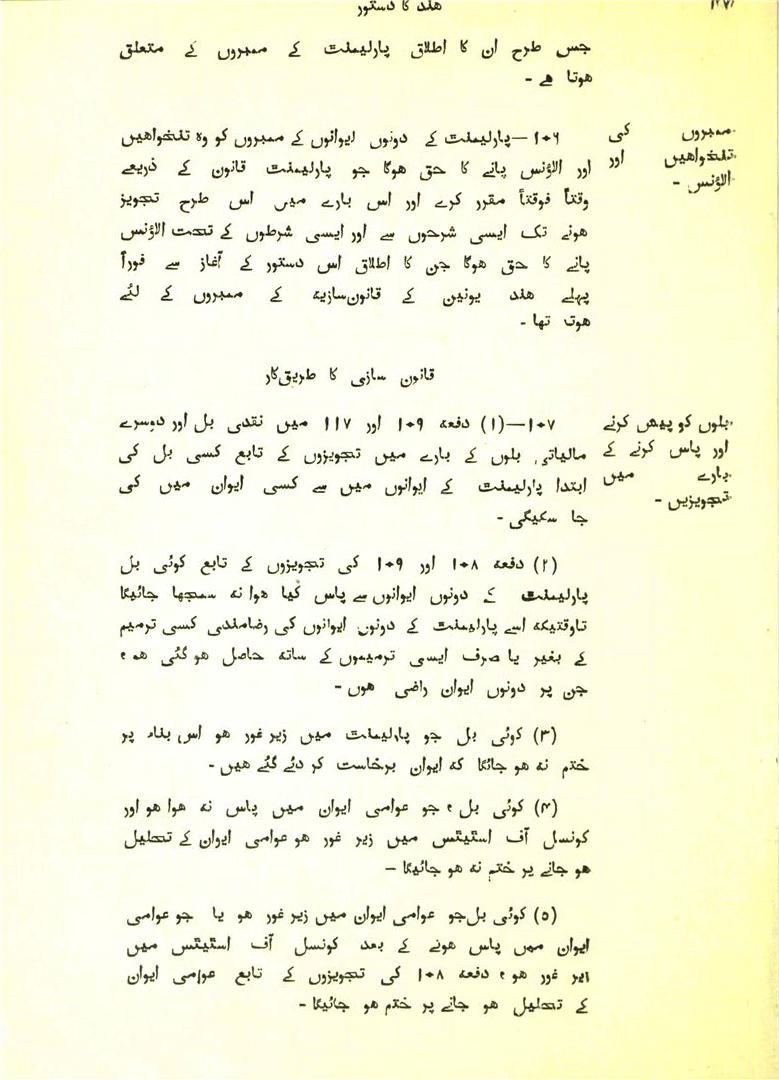 ہند کا دستور
جس طرح ان کا اطلاق پارلیمنٹ کے ممبروں کے متعلق
ہوتا ہے -
ممبروں کی
تنخواہیں اور
الاؤنس -
۱۰۶—پارلیمنٹ کے دونوں ایوانوں کے ممبروں کو وہ تنخواہیں
اور الاؤنس پانے کا حق ہوگا جو پارلیمنٹ قانون کے ذریعے
وقتاً فوقتاً مقرر کرے اور اس بارے میں اس طرح تجویز
ہونے تک ایسی شرحوں سے اور ایسی شرطوں کے تحت الاؤنس
پانے کا حق ہوگا جن کا اطلاق اس دستور کے آغاز سے فوراً
پہلے ہند یونین کے قانون‌سازیہ کے ممبروں کے لئے
ہوت تھا -
قانون سازی کا طریق‌کار
بلوں کو پیش کرنے
اور پاس کرنے کے
بارے میں
تجویزیں -
۱۰۷—(۱) دفعہ ۱۰۹ اور ۱۱۷ میں نقدی بل اور دوسرے
مالیاتی بلوں کے بارے میں تجویزوں کے تابع کسی بل کی
ابتدا پارلیمنٹ کے ایوانوں میں سے کسی ایوان میں کی
جا سکیگی -
(۲) دفعہ ۱۰۸ اور ۱۰۹ کی تجویزوں کے تابع کوئی بل
پارلیمنٹ کے دونوں ایوانوں سے پاس کیا ہوا نہ سمجھا جائیگا
تاوقتیکہ اسے پارلیمنٹ کے دونوں ایوانوں کی رضامندی کسی ترمیم
کے بغیر یا صرف ایسی ترمیموں کے ساتھ حاصل ہو گئی ہو،
جن پر دونوں ایوان راضی ہوں -
(۳) کوئی بل جو پارلیمنٹ میں زیر غور ہو اس بناء پر
ختم نہ ہو جائگا کہ ایوان برخاست کر دئے گئے ہیں -
(۴) کوئی بل، جو عوامی ایوان میں پاس نہ ہوا ہو اور
کونسل آف اسٹیٹس میں زیر غور ہو عوامی ایوان کے تحلیل
ہو جانے پر ختم نہ ہو جائیگا —
(۵) کوئی بل جو عوامی ایوان میں زیر غور ہو یا جو عوامی
ایوان میں پاس ہونے کے بعد کونسل آف اسٹیٹس میں
زیر غور ہو، دفعہ ۱۰۸ کی تجویزوں کے تابع عوامی ایوان
کے تحلیل ہو جانے پر ختم ہو جائیگا -